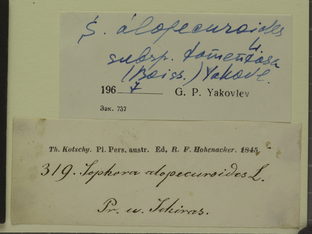 S. alopecuroides L.
subsp. tomentosa
(Boiss.) Yakovl.
1967 G. P. Yakovlev
Зак. 737
Th. Kotschy. Pl. Pers. austr. Ed. R. F. Hohenacker. 1845.
319. Sophora alopecuroides L.
Pr. u. Schiras.